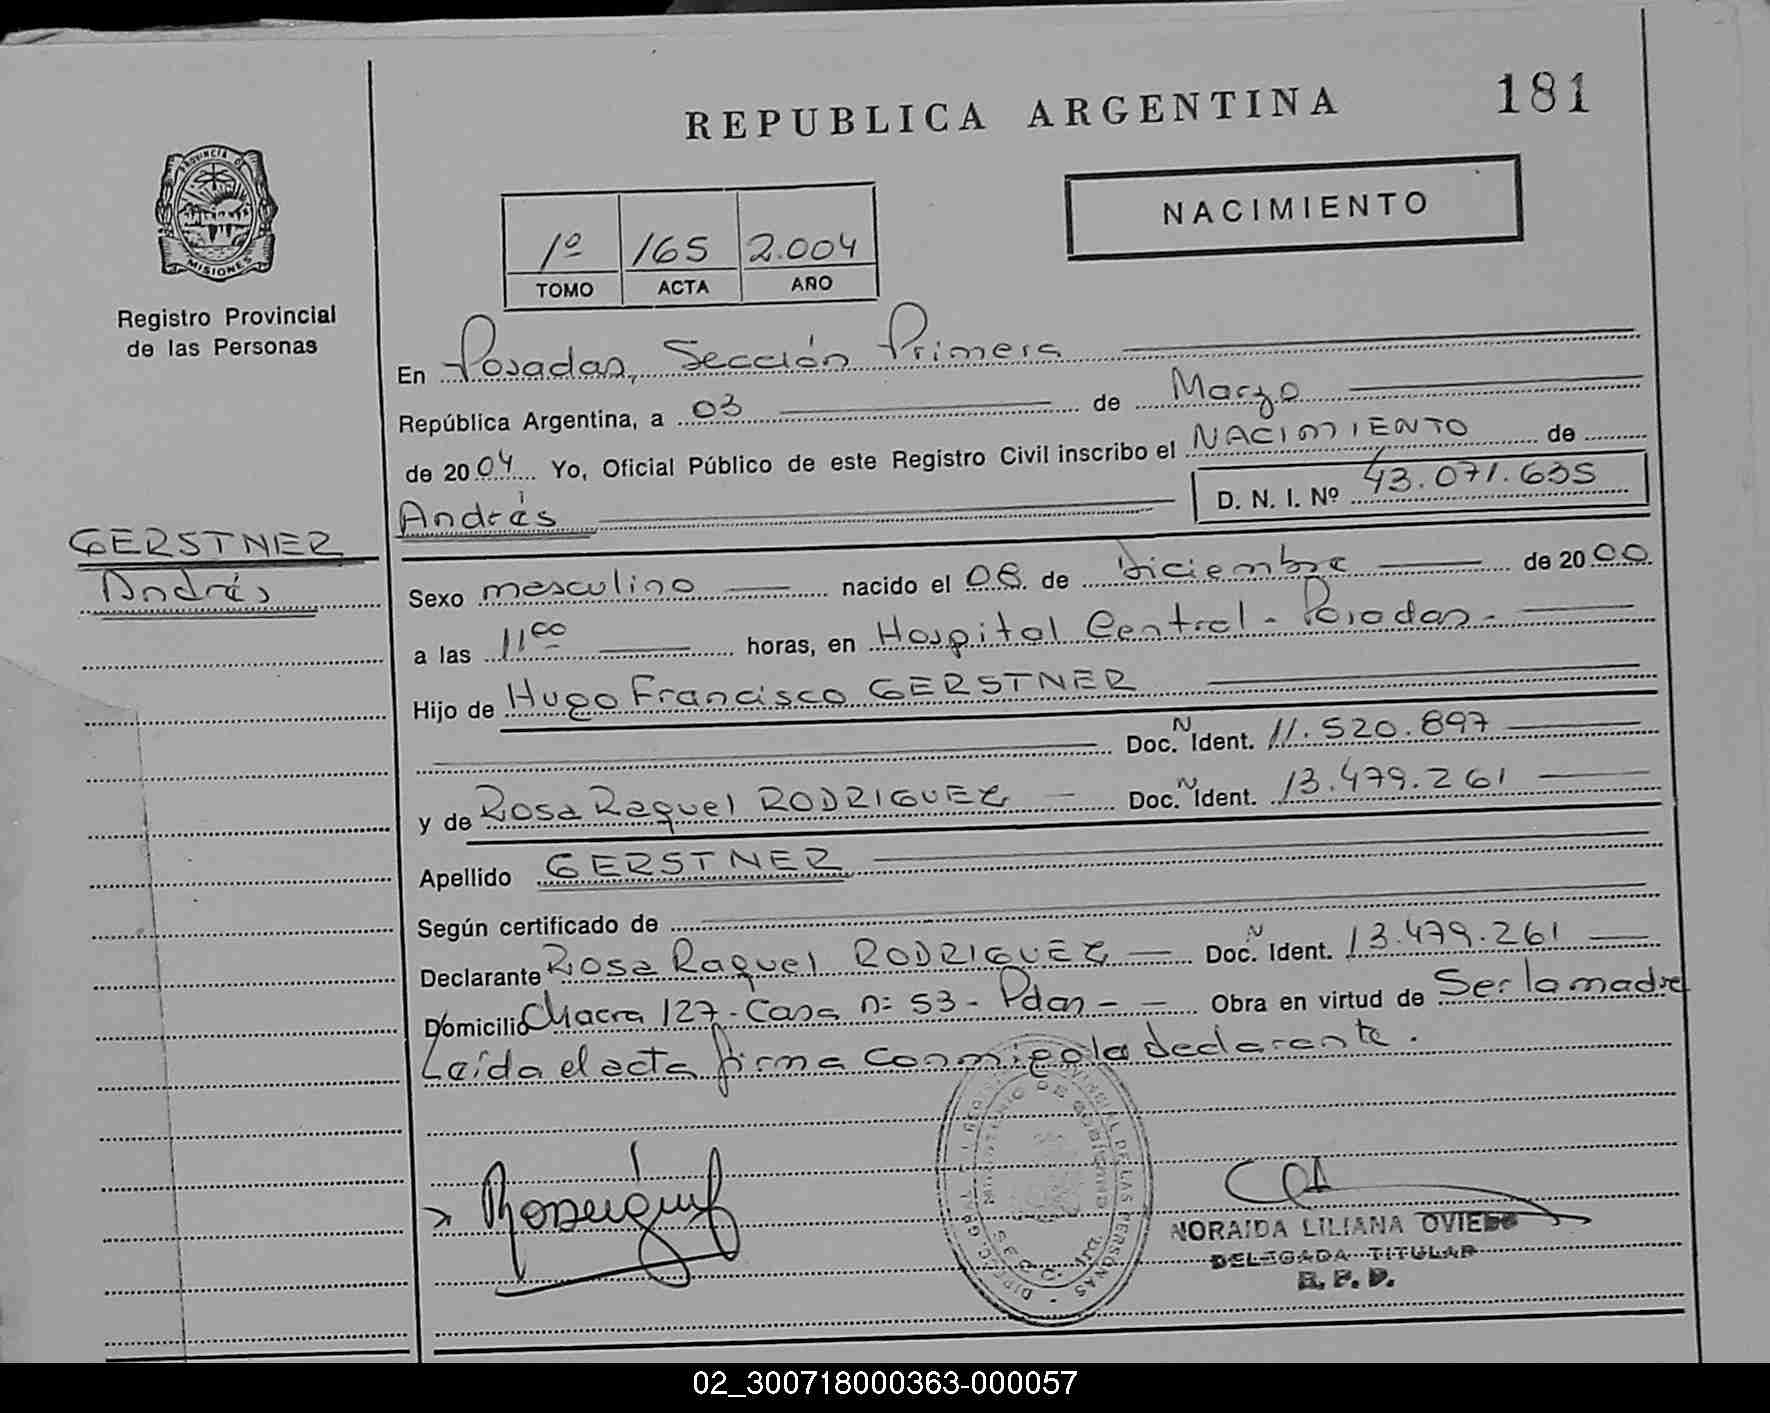 181
REPUBLICA ARGENTINA
NACIMIENTO
PROVINCIA DE
MISIONES
Registro Provincial
de las Personas
1º 165 2.004
TOMO ACTA AÑO
En Posadas, Sección Primera
República Argentina, a 03 de Marzo
de 2004 Yo, Oficial Público de este Registro Civil inscribo el NACIMIENTO de
Andrés D. N. I. Nº 43.071.635
GERSTNER
Andrés
Sexo masculino nacido el 08 de diciembre de 2000
a las 11 00 horas, en Hospital Central - Posadas -
Hijo de Hugo Francisco GERSTNER
Doc. N Ident. 11.520.897
y de Rosa Raquel RODRIGUEZ - Doc. N Ident. 13.479.261
Apellido GERSTNER
Según certificado de
Declarante Rosa Raquel RODRIGUEZ - Doc. N Ident. 13.479.261
Domicilio Chacra 127 - Casa n= 53 - Pdas - - Obra en virtud de Ser la madre
Leída el acta firma conmigo la declarante.
NORAIDA LILIANA OVIEDO
DELEGADA TITULAR
R. P. P.
02_300718000363-000057